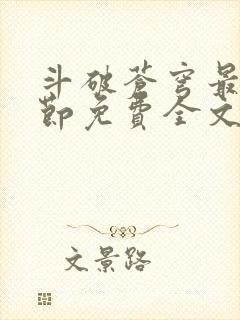 斗破苍穹最
节免费全文
文景路